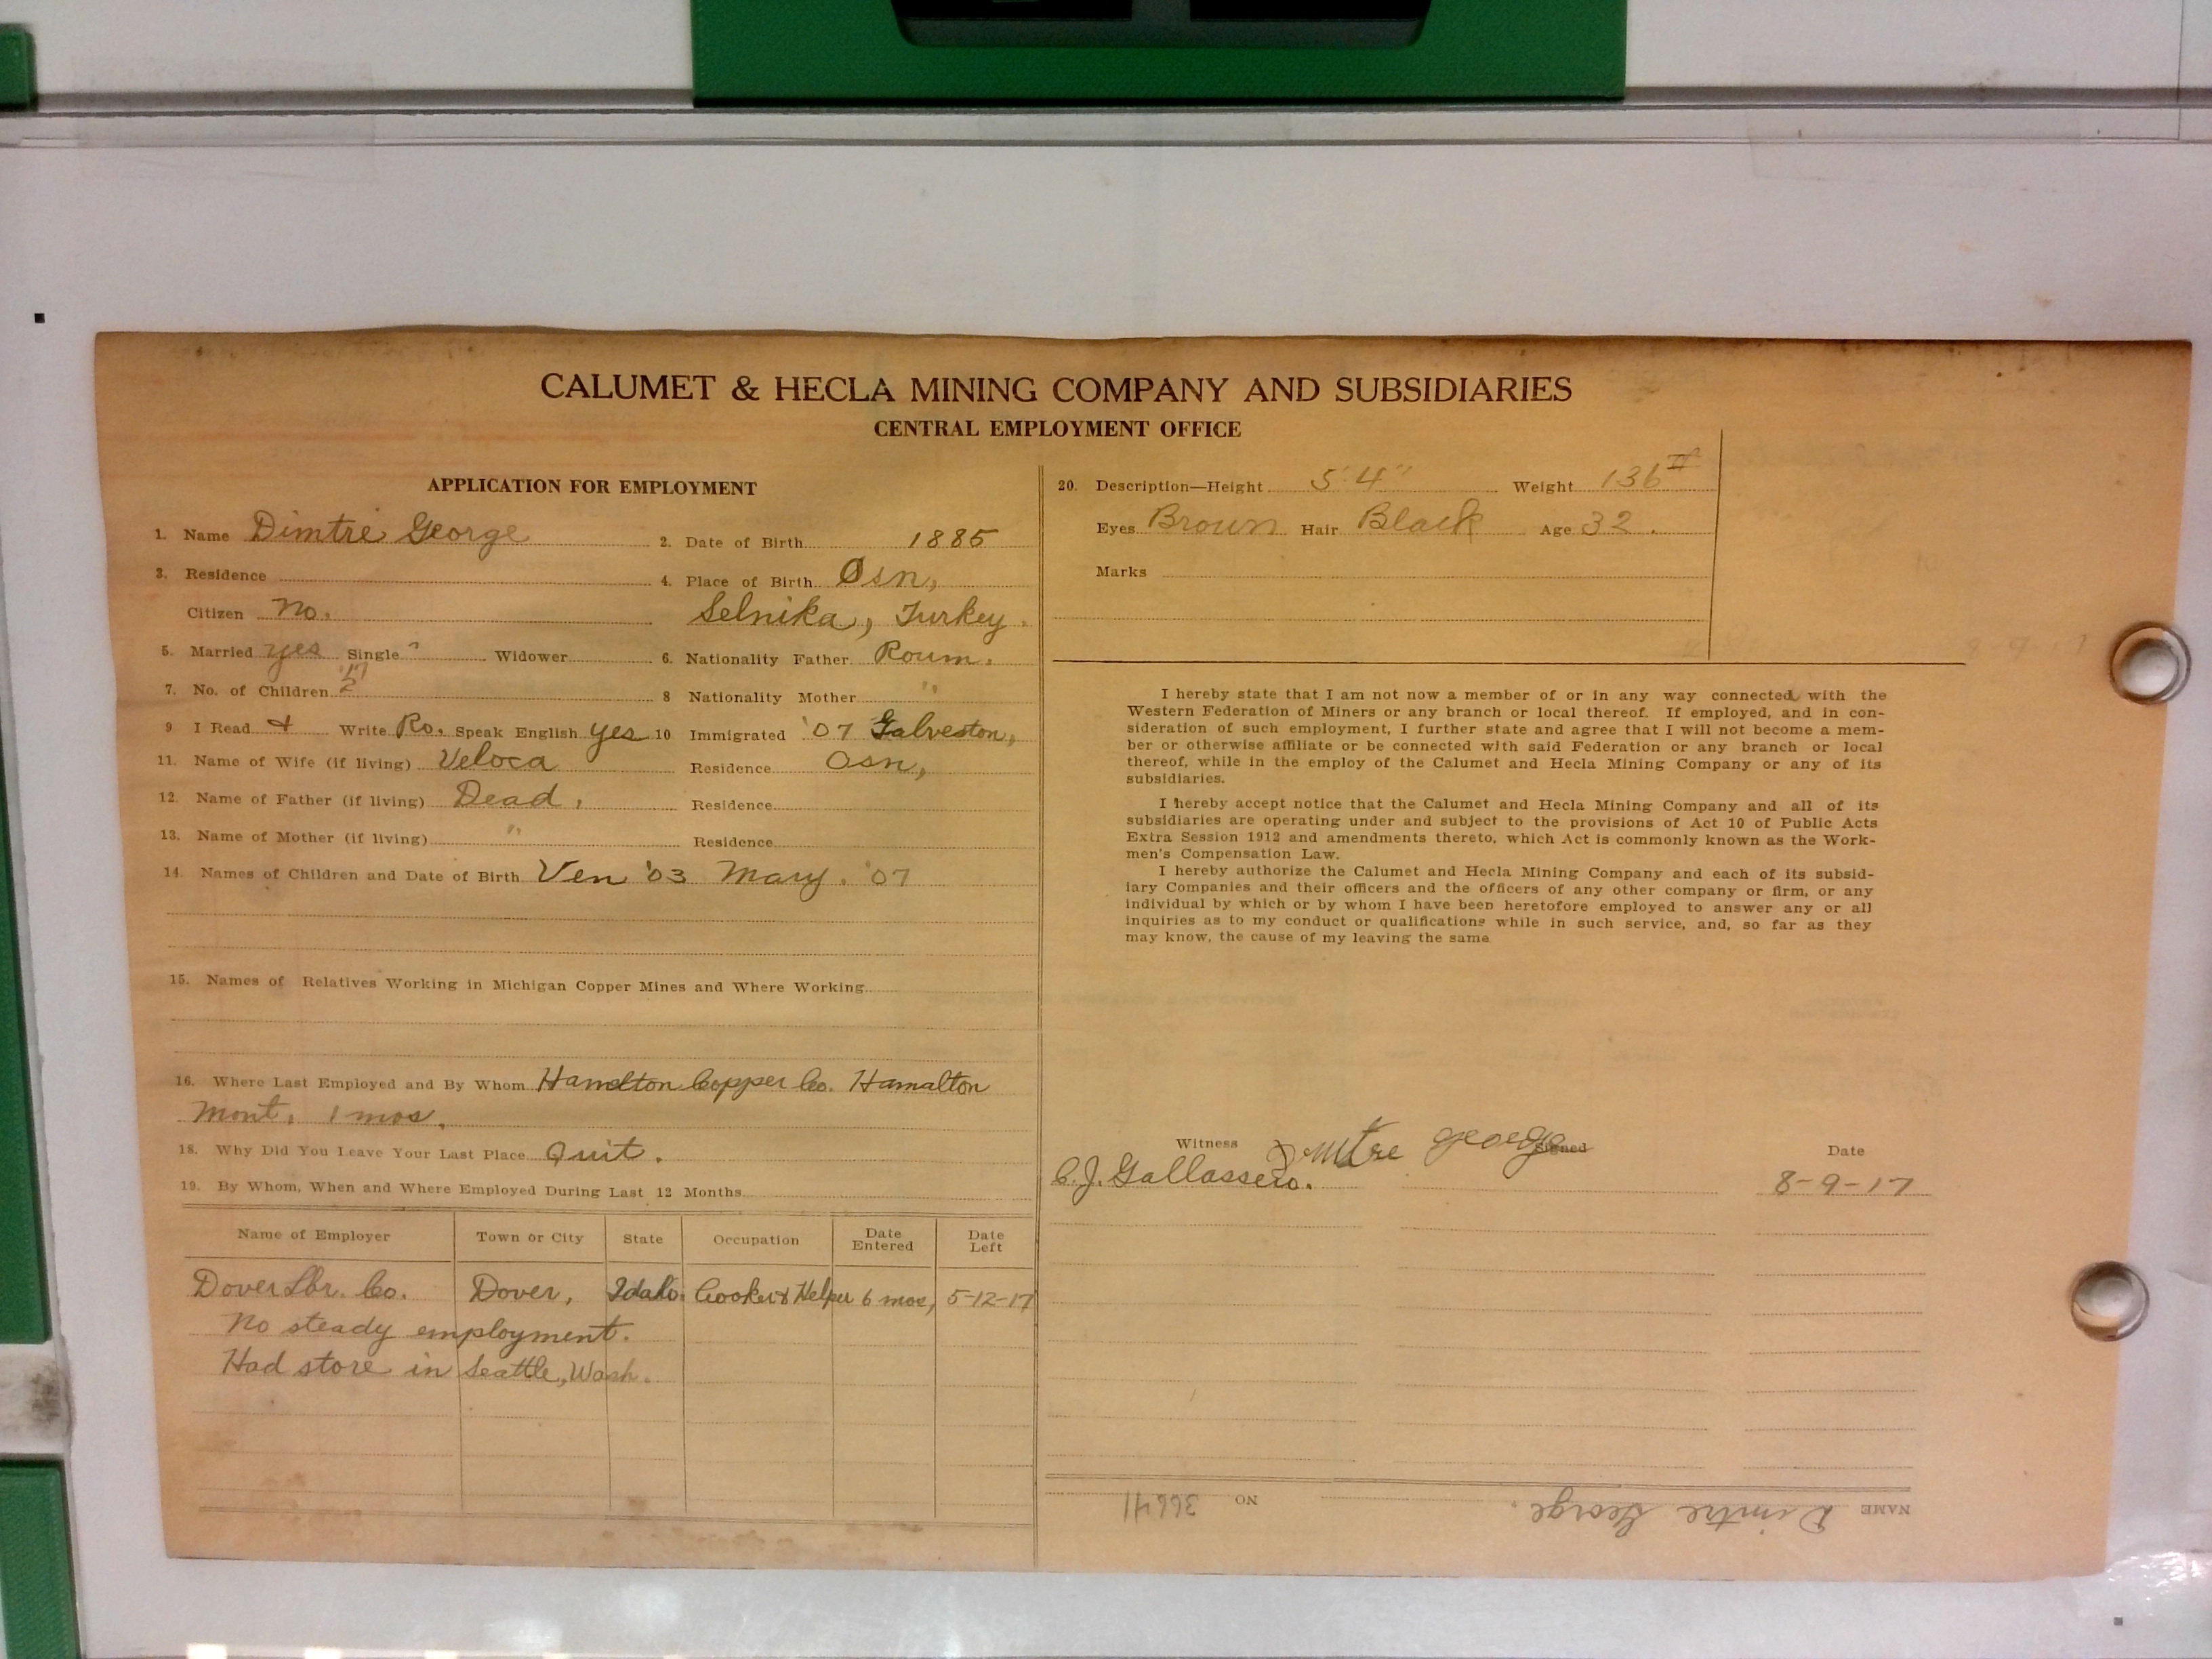 CALUMET & HECLA MINING COMPANY AND SUBSIDIARIES
CENTRAL EMPLOYMENT OFFICE
APPLICATION FOR EMPLOYMENT
1. Name Dimtre George 2. Date of Birth 1885
3. Residence 4. Place of Birth Osn,
Citizen No. Selnika, Turkey.
5. Married yes Single " Widower 6. Nationality Father Roum.
7. No. of Children 2 8 Nationality Mother "
9 I Read & Write Ro. Speak English yes 10 Immigrated '07 Galveston,
11. Name of Wife (if living) Veloca Residence Osn,
12. Name of Father (if living) Dead. Residence
13. Name of Mother (if living) " Residence
14. Names of Children and Date of Birth Ven '03 Mary. '07
15. Names of Relatives Working in Michigan Copper Mines and Where Working
16. Where Last Employed and By Whom Hamelton Copper Co. Hamalton
Mont. 1 mos.
18. Why Did You Leave Your Last Place Quit.
19. By Whom, When and Where Employed During Last 12 Months
Name of Employer Town or City State Occupation Date Entered Date Left
Dover Lbr. Co. Dover, Idaho. Cooker & Helper 6 mos, 5-12-17
No steady employment.
Had store in Seattle, Wash.
20. Description—Height 5'4" Weight 136#
Eyes Brown Hair Black Age 32.
Marks
I hereby state that I am not now a member of or in any way connected with the
Western Federation of Miners or any branch or local thereof. If employed, and in con-
sideration of such employment, I further state and agree that I will not become a mem-
ber or otherwise affiliate or be connected with said Federation or any branch or local
thereof, while in the employ of the Calumet and Hecla Mining Company or any of its
subsidiaries.
I hereby accept notice that the Calumet and Hecla Mining Company and all of its
subsidiaries are operating under and subject to the provisions of Act 10 of Public Acts
Extra Session 1912 and amendments thereto, which Act is commonly known as the Work-
men's Compensation Law.
I hereby authorize the Calumet and Hecla Mining Company and each of its subsid-
iary Companies and their officers and the officers of any other company or firm, or any
individual by which or by whom I have been heretofore employed to answer any or all
inquiries as to my conduct or qualifications while in such service, and, so far as they
may know, the cause of my leaving the same
Witness Dimtre george Signed Date
C. J. Gallassero. 8-9-17
NAME Dimtre George. NO 36641